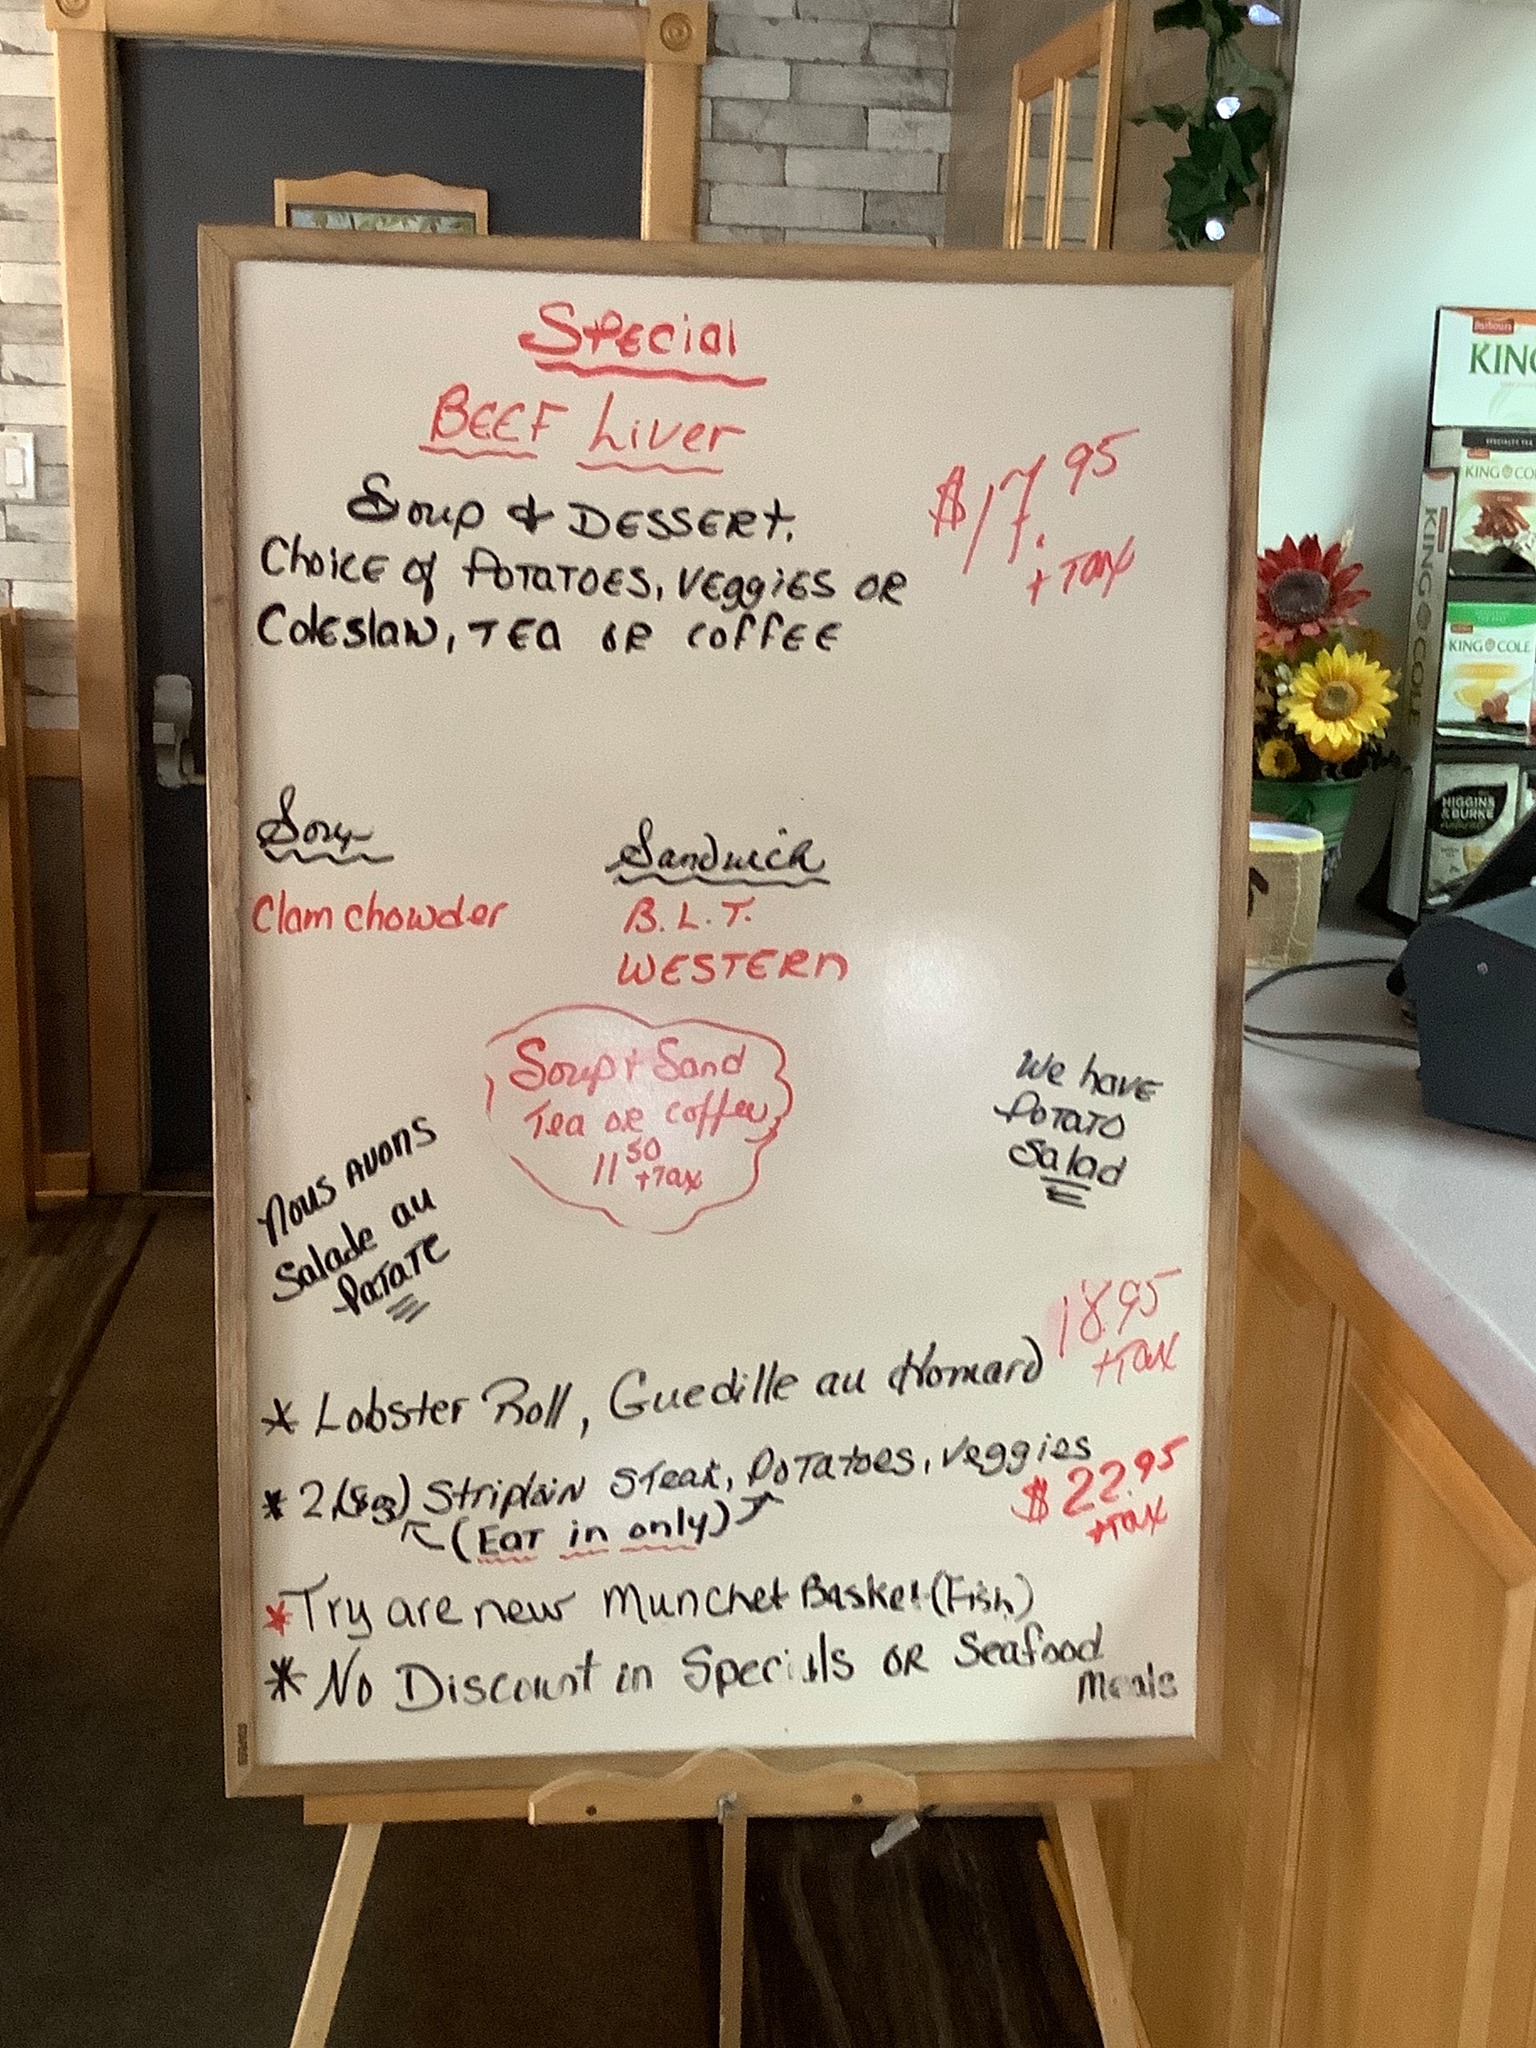 Special
BEEF Liver
$17.95
+ TAX
Soup & DESSERT.
Choice of POTATOES, Veggies OR
Coleslaw, TEA OR COFFEE
Soup
Sandwich
Clam chowder
B.L.T.
WESTERN
Soup + Sand
Tea OR coffee
11 50
+Tax
We have
Potato
Salad
Nous avons
Salade au
Patate
18.95
+Tax
* Lobster Roll, Guedille au Homard
* 2 (8oz) Striploin Steak, Potatoes, Veggies
$22.95
+Tax
(Eat in only)
*Try are new Munchet Basket (Fish)
* No Discount in Specials OR Seafood
Meals
Barbours
KING
SPECIALTY TEA
KING COLE
KING COLE
KING COLE
HIGGINS
& BURKE